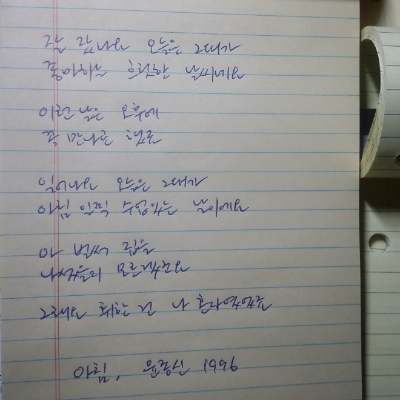 잘 잤나요 오늘은 그대가
좋아하는 흐릿한 날씨네요
이런 날은 오후에
꼭 만나곤 했죠
일어나요 오늘은 그대가
아침 일찍 수업있는 날이에요
아 벌써 집을
나섰을지 모르겠군요
그래요 취한 건 나 혼자였었죠
아침, 윤종신 1996